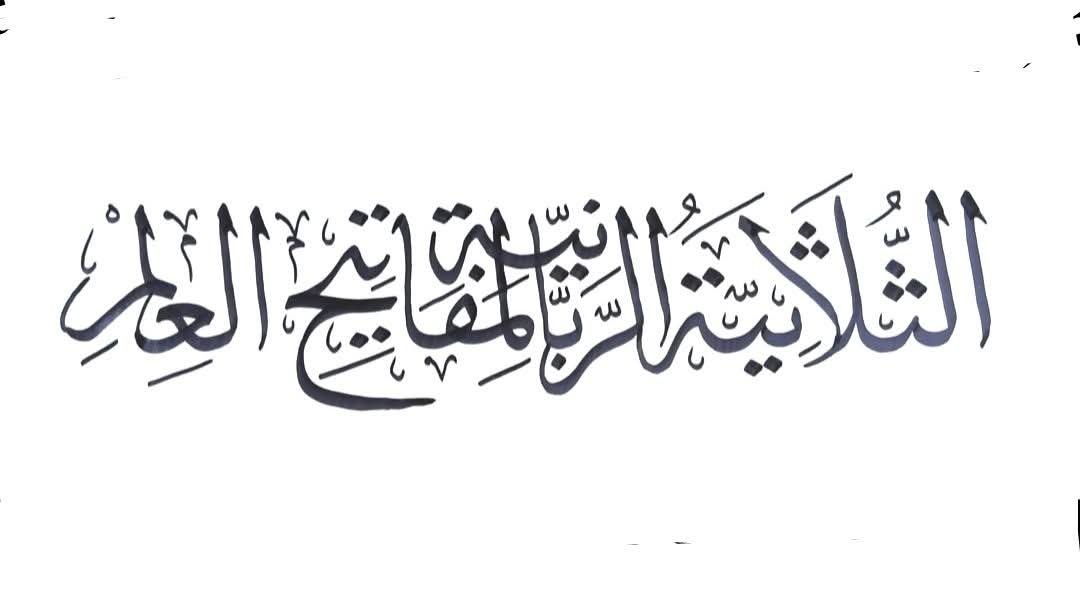 الثُّلَاثِيَّةُ الرَّبَّانِيَّة لِمَفَاتِيحِ العِلْمِ